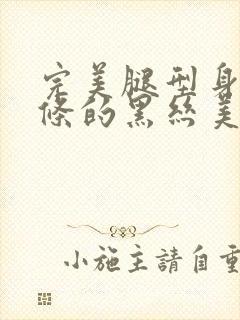 完美腿型身
條的黑丝美
小施主請自重